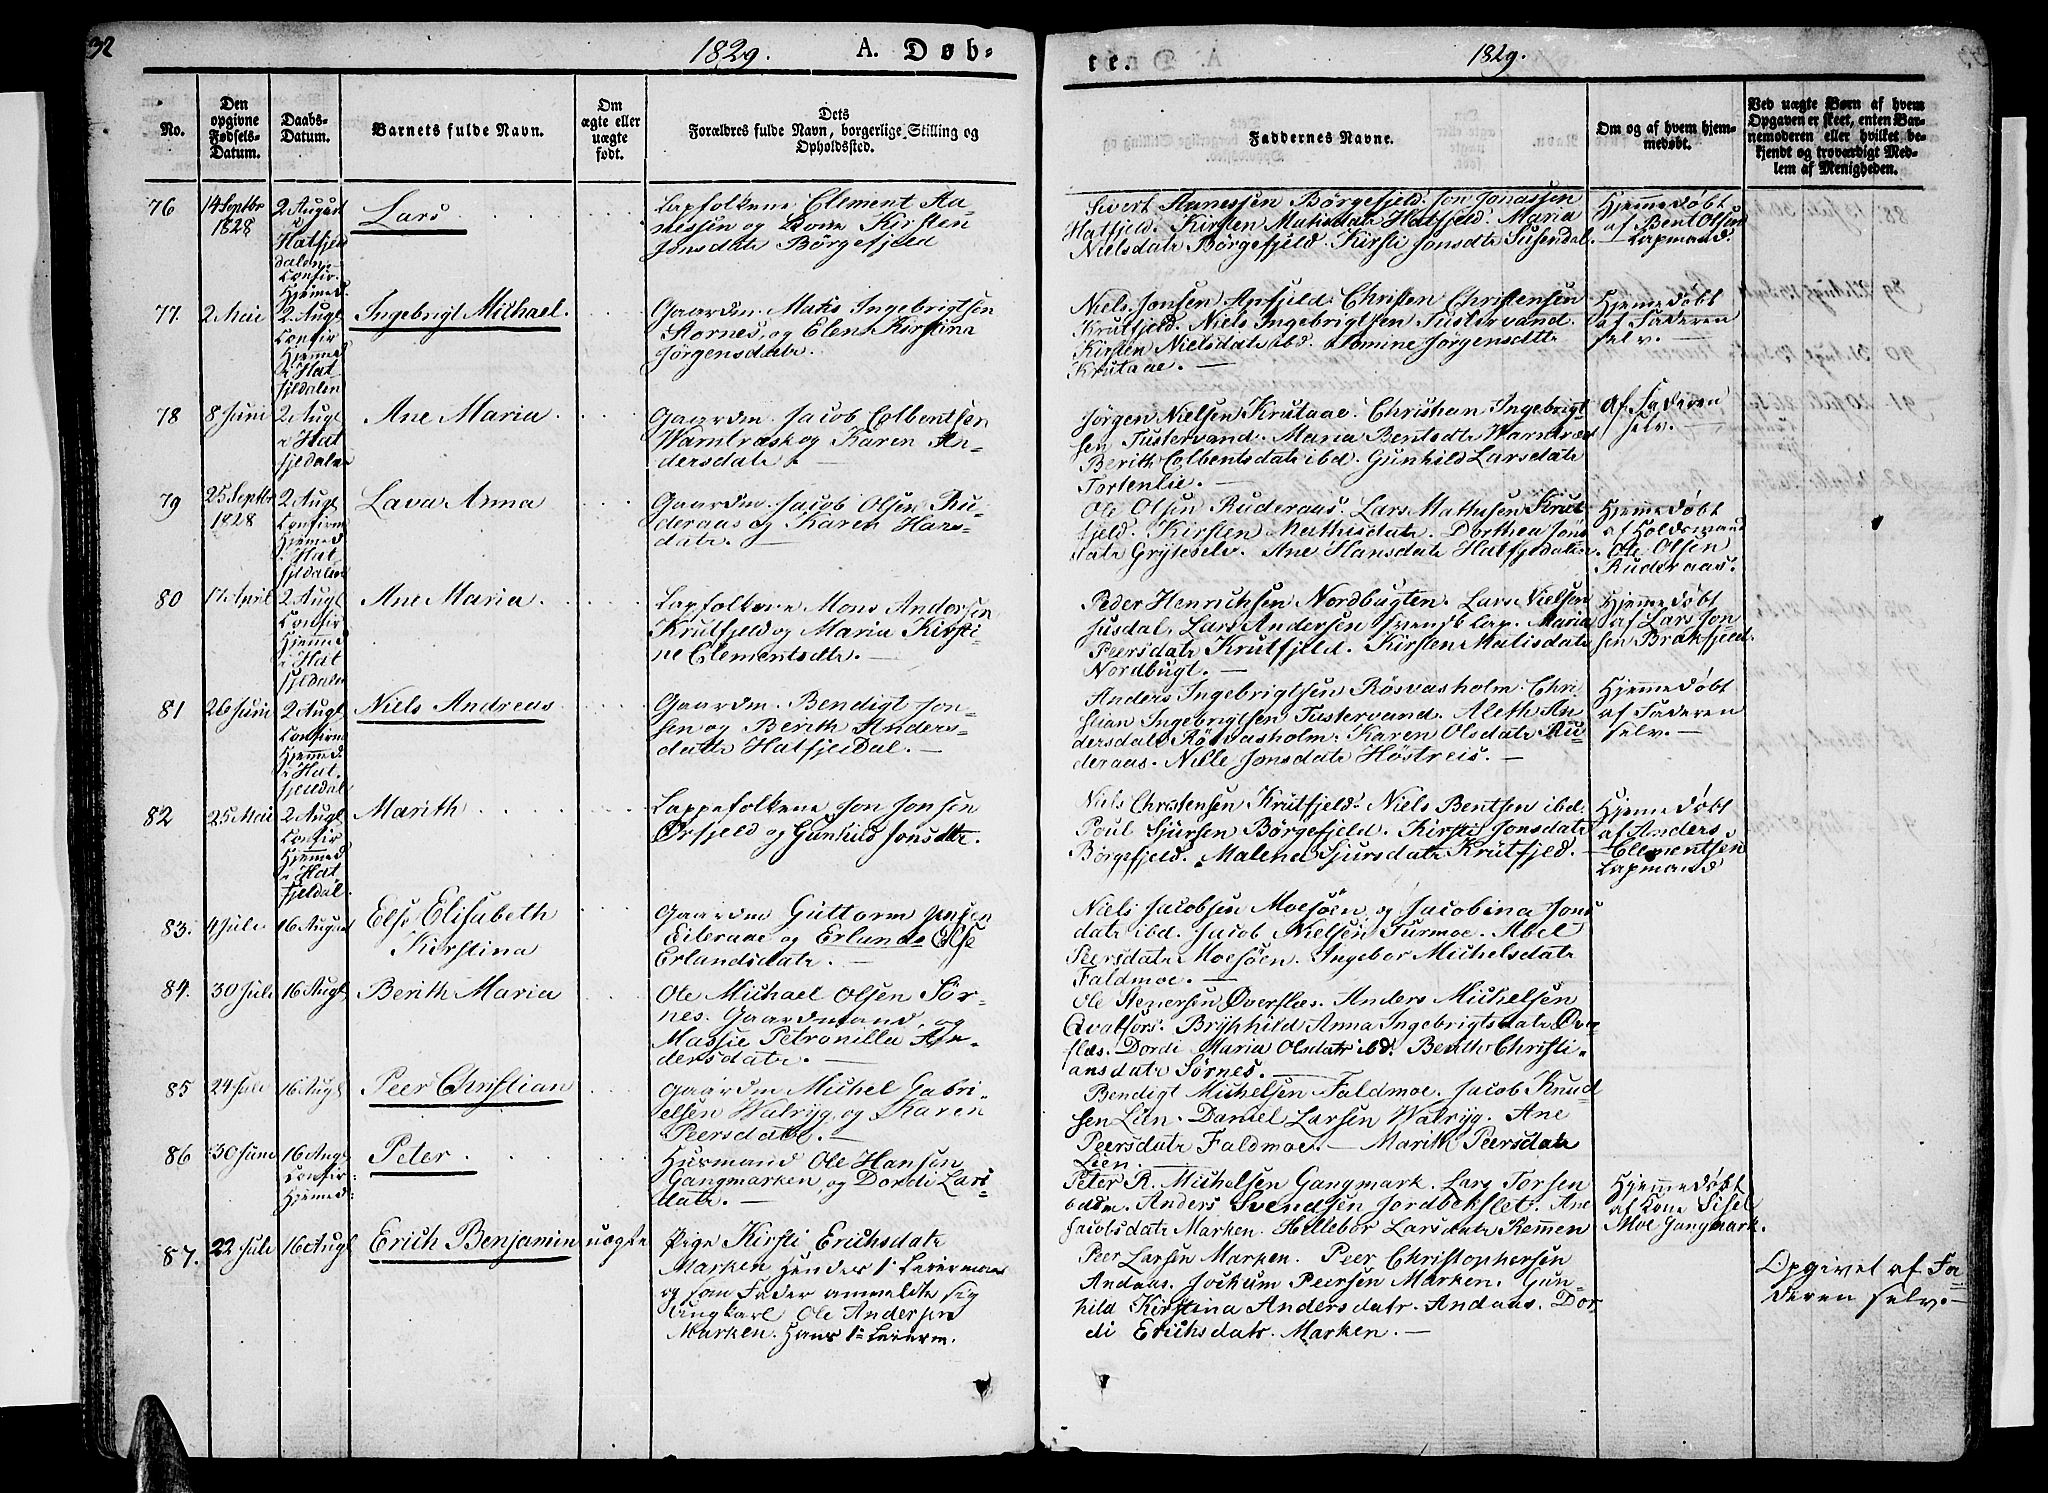 32
1829.
A. Døb-
te.
1829.
No.
Den opgivne Fødsels-Datum.
Daabs-Datum.
Barnets fulde Navn.
Om ægte eller uægte født.
Dets Forældres fulde Navn, borgerlige Stilling og Opholdssted.
Faddernes Navne.
Om og af hvem hjemmedøbt.
Ved uægte Børn af hvem Opgaven er skeet, enten Barnemoderen eller hvilket bekjendt og troværdigt Medlem af Menigheden.
76
14 Septbr
1828
2 August
i
Hatfjel
dalen
Confir.
Hjemed.
Lars
Lapfolkene Clement Aa-
nessen og Kone Kirsten
Jonsdatr Börgefjeld
Sivert Aanessen Börgefjeld. Jon Jonassen
Hatfjeld. Kirsten Matisdatr Hatfjeld. Maria
Nielsdatr Börgefjeld. Kirsti Jonsdtr Susendal.
Hjemmedøbt
af Bent Olsen
Lapmand.
77.
2 Mai
2 Augt
Confir
Hjemed
i Hat
fjeldalen
Ingebrigt Michael.
Gaardm. Mats Ingebrigtsen
Stornes, og Elen Kirstina
Jörgensdatr.
Niels Jonsen Apfjeld. Christen Christensen
Krutfjeld. Niels Ingebrigtsen Tustervand.
Kirsten Nielsdatr ibd. Jörgensdtr
Krutaae. —
Hjemmedøbt
af Faderen
selv. —
78
8 Juni
2 Augt
i Hat
fjeldalen
Ane Maria
Gaardm. Jacob Colbentsen
Warntræsk og Karen An-
dersdatr. —
Jörgen Nielsen Krutaae. Christian Ingebrigt
sen Tustervand. Maria Bentsdtr Warntræsk
Berith Colbentsdatr ibd. Gunhild Larsdatr
Tortenlie. —
Af Faderen
selv. —
79
25 Septbr
1828
2 Augt
Confirm
Hjemed
i Hat
fjeldalen
Lava Anna
Gaardm. Jacob Olsen Ru-
deraas og Karen Hans-
datr. —
Ole Olsen Ruderaas. Lars Mathisen Krut
fjeld. Kirsten Mathisdatr. Dorthea Jons
datr Grÿteselv. Ane Hansdatr Hatfjeldalen.
Hjemmedøbt
af Holdsmand
Ole Olsen
Ruderaas.
80
17 April
2 Augt
Confir
Hjemmed
i Hat
fjeldalen
Ane Maria
Lapfolkene Mons Andersen
Krutfjeld og Maria Kirsti-
ne Clementsdtr. —
Peder Henrichsen Nordbugten. Lars Nielsen
Susdal, Lars Andersen svensk Lap. Maria
Peersdatr Krutfjeld. Kirsten Matisdatr
Nordbugt. —
Hjemmedøbt
af Lars Jon
sen Brakfjeld.
81
26 Juni
2 Augt
Confirm
Hjemmed.
i Hat.
fjeldal
Niels Andreas
Gaardm. Bendigt Jon-
sen og Berith Anders-
datr Hatfjeldal. —
Anders Ingebrigtsen Rösvasholm. Chri
stian Ingebrigtsen Tustervand. Aleth An
dersdatr Rösvasholm. Karen Olsdatr Ru-
deraas. Nille Jonsdatr Höstreis. —
Hjemmedøbt
af Faderen
selv. —
82
25 Mai
2 Augt
Confir
Hjemmed
i Hat
fjeldal.
Marith
Lappefolkene Jon Jonsen
Örfjeld og Gunhild Jonsdtr.
Niels Christensen Krutfjeld. Niels Bentsen ibd.
Poul Sjursen Börgefjeld. Kirsti Jonsdatr
Börgefjeld. Malena Sjursdatr Krutfjeld. —
Hjemmedøbt
af Anders
Clementsen
Lapmand
83.
4 Juli
16 August
Else Elisabeth
Kirstina
Gaardm Guttorm Jensen
Eiteraae og Erlunds Else
Erlundsdatr. —
Niels Jacobsen Moesöen, og Jacobina Jons
datr ibd. Jacob Nielsen Turmoe. Abel
Peersdatr Moesöen. Ingebor Michelsdatr
Faldmoe. —
84.
30 Juli
16 Augt
Berith Maria
Ole Michael Olsen Sör-
nes. Gaardmand, og
Massie Petronilla An-
dersdatr. —
Ole Stenersen Øverflæs. Anders Michelsen
Qvalfors. Brÿnhild Anna Ingebrigtsdatr Øv-
flæs. Dordi Maria Olsdatr ibd. Berith Christi-
ansdatr Sörnes. —
85
24 Juli
16 Augt
Peer Christian
Gaardm Michel Gabri-
elsen Walrÿg, og Karen
Peersdatr. —
Bendigt Michelsen Faldmoe. Jacob Knud
sen Lien. Daniel Larsen Walrÿg. Ane
Peersdatr Faldmoe. — Marith Peersdatr
Lien. —
86
30 Juni
16 Augt
Confir-
Hjemed.
Peter
Husmand Ole Hansen
Gangmarken, og Dordi Lars-
datr. —
Peter R. Michelsen Gangmark. Lars Torsen
ibdm. Anders Svendsen Jordbekslet. Ane
Jacobsdatr Marken. Hellebor Larsdatr Kemmen
Hjemmedøbt
af Kone Sisel
Moe Gangmark.
87.
22 Juli
16 Augt
Erich Benjamin
uægte
Pige Kirsti Erichsdatr
Marken Hendes 1ste Leiermaal
og som Fader anmeldte sig
Ungkarl Ole Andersen
Marken. Hans 1te Leierm.
Peer Larsen Marken. Peer Christophersen
Andaas. Jochum Peersen Marken. Gun-
hild Kirstina Andersdatr. Andaas. Dor
di Erichsdatr. Marken. —
Opgivet af Fa-
deren selv. —